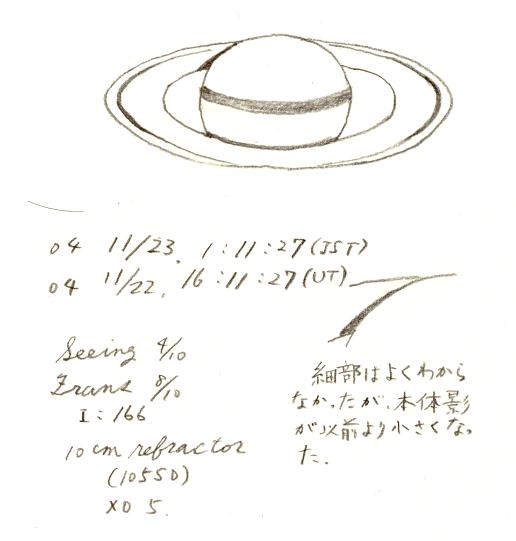 04 11/23. 1:11:27 (JST)
04 11/22. 16:11:27 (UT)
Seeing 4/10
Trans 8/10
I: 166
10 cm refractor
(105SD)
XO 5
細部はよくわから
なかったが、本体影
が以前より小さくなっ
た.